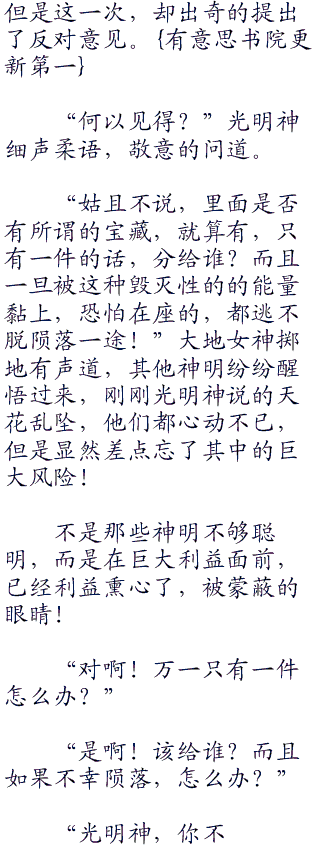 但是这一次，却出奇的提出
了反对意见。{有意思书院更
新第一}
“何以见得？”光明神
细声柔语，敬意的问道。
“姑且不说，里面是否
有所谓的宝藏，就算有，只
有一件的话，分给谁？而且
一旦被这种毁灭性的的能量
黏上，恐怕在座的，都逃不
脱陨落一途！”大地女神掷
地有声道，其他神明纷纷醒
悟过来，刚刚光明神说的天
花乱坠，他们都心动不已，
但是显然差点忘了其中的巨
大风险！
不是那些神明不够聪
明，而是在巨大利益面前，
已经利益熏心了，被蒙蔽的
眼睛！
“对啊！万一只有一件
怎么办？”
“是啊！该给谁？而且
如果不幸陨落，怎么办？”
“光明神，你不